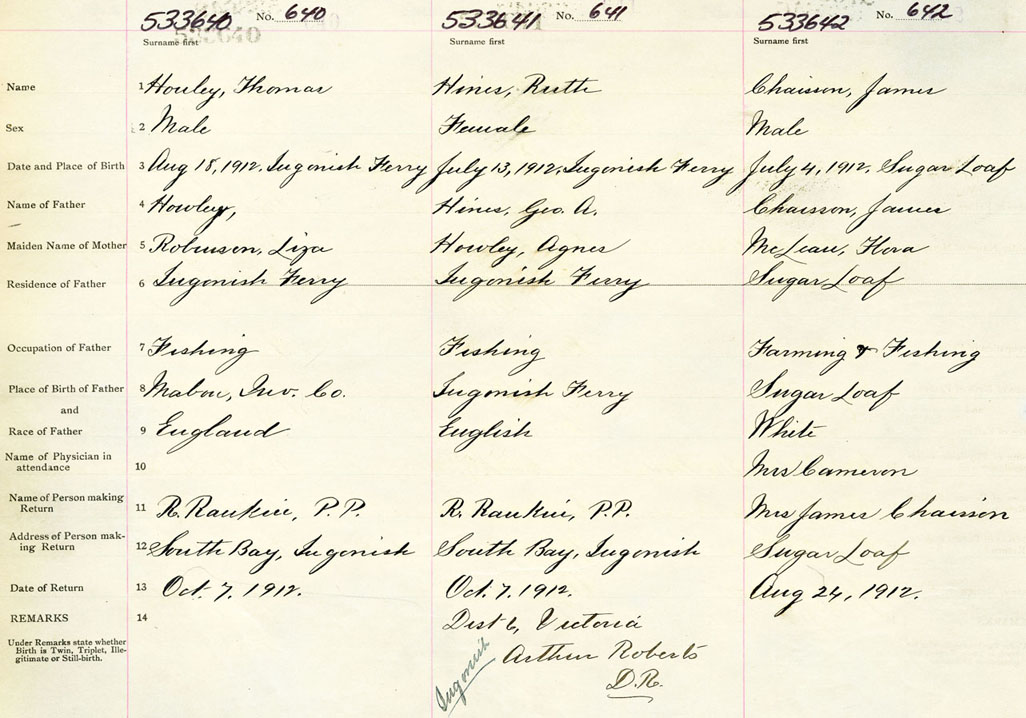 533640 No. 640 533641 No. 641 533642 No. 642
533640
Surname first Surname first Surname first
Name 1 Howley, Thomas Hines, Ruth Chaisson, James
Sex 2 Male Female Male
Date and Place of Birth 3 Aug 18, 1912. Ingonish Ferry July 13, 1912. Ingonish Ferry July 4, 1912. Sugar Loaf
Name of Father 4 Howley, Hines, Geo. A. Chaisson, James
Maiden Name of Mother 5 Robinson, Liza Howley, Agnes McLean, Flora
Residence of Father 6 Ingonish Ferry Ingonish Ferry Sugar Loaf
Occupation of Father 7 Fishing Fishing Farming & Fishing
Place of Birth of Father 8 Mabou, Inv. Co. Ingonish Ferry Sugar Loaf
and
Race of Father 9 England English White
Name of Physician in
attendance 10 Mrs Cameron
Name of Person making
Return 11 R. Rankin, P.P. R. Rankin, P.P. Mrs James Chaisson
Address of Person mak-
ing Return 12 South Bay, Ingonish South Bay, Ingonish Sugar Loaf
Date of Return 13 Oct. 7. 1912. Oct. 7. 1912. Aug 24, 1912.
REMARKS 14 Dist 6, Victoria
Under Remarks state whether
Birth is Twin, Triplet, Ille-
gitimate or Still-birth.
Arthur Roberts
D.R.
Ingonish